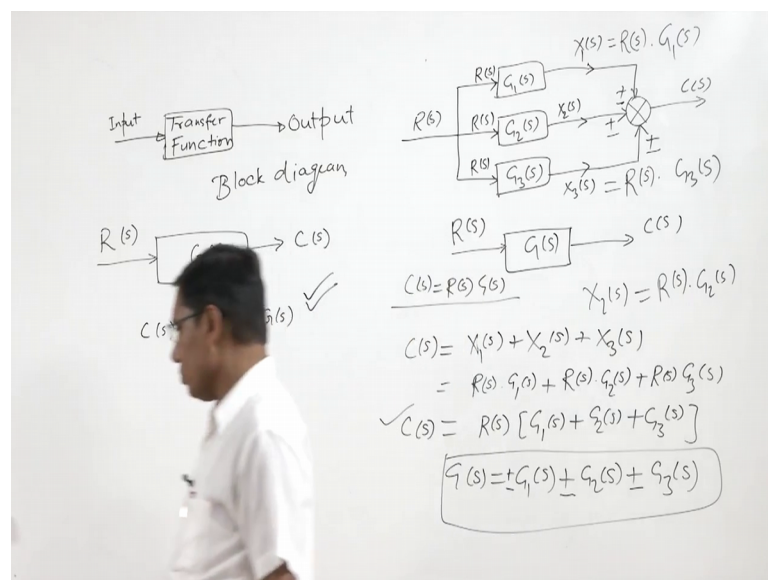 Input
Transfer
Function
Output
Block diagram
R(s)
C(s)
C(s
G(s)
X₁(s)=R(s).G₁(s)
R(s)
G₁(s)
C(s)
±
R(s)
R(s)
G₂(s)
X₂(s)
±
R(s)
G₃(s)
±
X₃(s)=R(s).G₃(s)
R(s)
G(s)
C(s)
C(s)=R(s)G(s)
X₂(s)=R(s).G₂(s)
C(s)= X₁(s)+X₂(s)+X₃(s)
= R(s).G₁(s)+R(s).G₂(s)+R(s)G₃(s)
✓C(s)= R(s)[G₁(s)+G₂(s)+G₃(s)]
G(s)=±G₁(s)±G₂(s)±G₃(s)